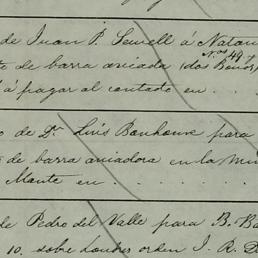 de Juan P. Sewell á Natan
Nos 49 y
te de barra aviada (dos Bonos
á pagar al contado en . . .
o de Dn Luis Bonhouse para
de barra aviadora en la Min
Mante en . . . . . .
de Pedro del Valle para B. Ba
10. sobre Londres orden J. R. D